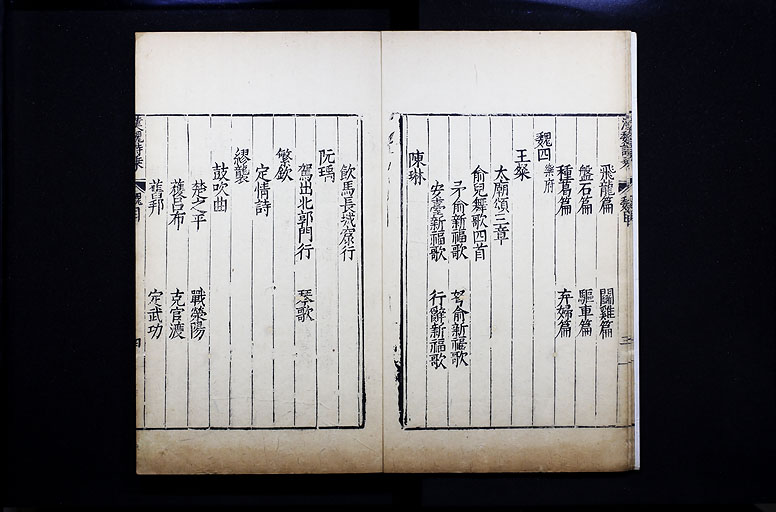 飛龍篇 鬬雞篇
盤石篇 驅車篇
種葛篇 弃婦篇
魏四 樂府
王粲
太廟頌三章
俞兒舞歌四首
矛俞新福歌 弩俞新福歌
安臺新福歌 行辭新福歌
陳琳
飲馬長城窟行
阮瑀
駕出北郭門行 琴歌
繁欽
定情詩
繆襲
鼓吹曲
楚之平 戰滎陽
獲呂布 克官渡
舊邦 定武功
漢魏詩乗 魏目